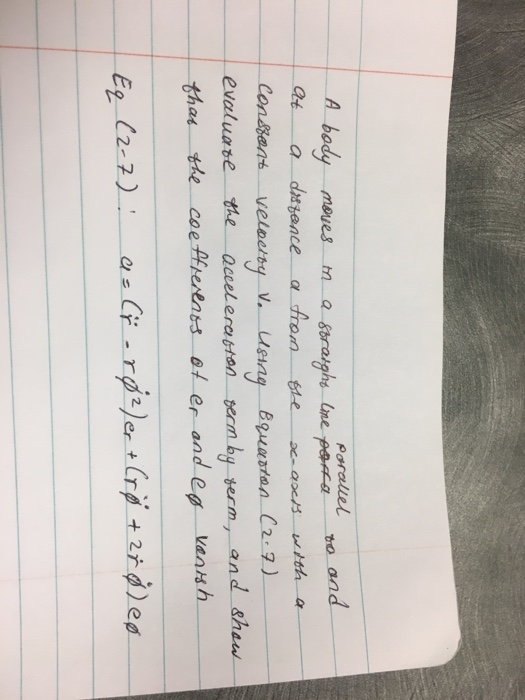 A body moves in a straight line parallel to and
at a distance a from the x-axis with a
Constant velocity V. Using Equation (2.7)
evaluate the acceleration term by term, and show
that the coefficients of er and eø vanish
Eq (2-7): a = (r̈ - rø̇²)er + (rø̈ + 2ṙø̇)eø